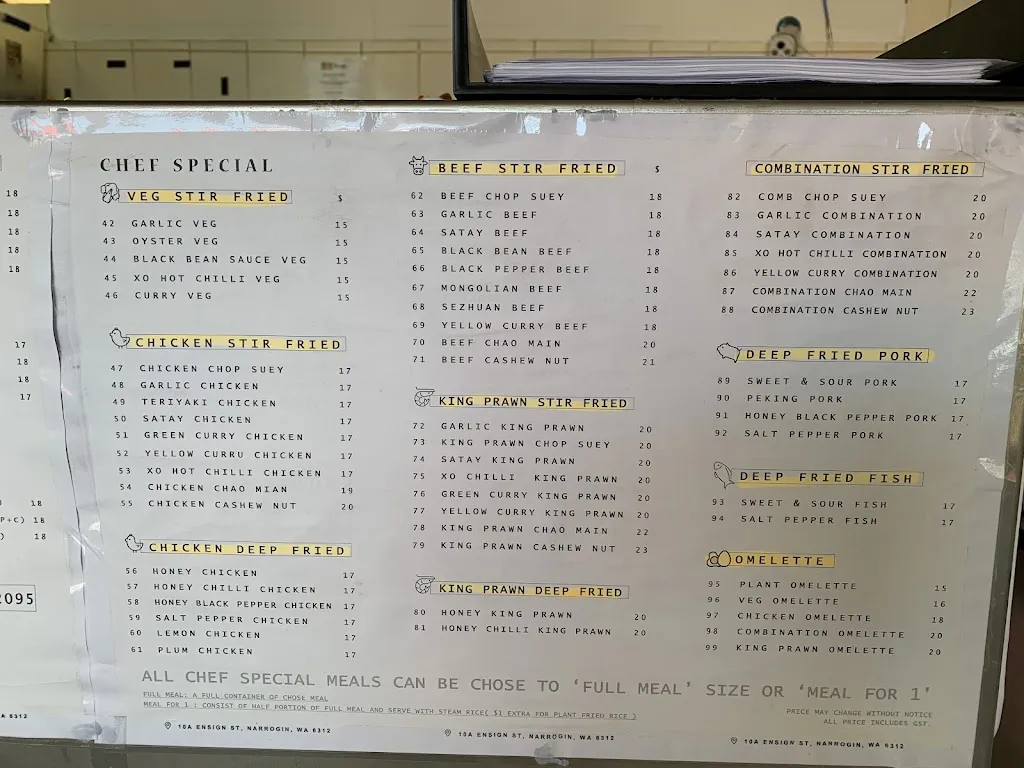 18
18
18
18
18
17
18
18
17
18
P+C) 18
) 18
2095
A 6312
CHEF SPECIAL
VEG STIR FRIED $
42 GARLIC VEG 15
43 OYSTER VEG 15
44 BLACK BEAN SAUCE VEG 15
45 XO HOT CHILLI VEG 15
46 CURRY VEG 15
CHICKEN STIR FRIED
47 CHICKEN CHOP SUEY 17
48 GARLIC CHICKEN 17
49 TERIYAKI CHICKEN 17
50 SATAY CHICKEN 17
51 GREEN CURRY CHICKEN 17
52 YELLOW CURRU CHICKEN 17
53 XO HOT CHILLI CHICKEN 17
54 CHICKEN CHAO MIAN 19
55 CHICKEN CASHEW NUT 20
CHICKEN DEEP FRIED
56 HONEY CHICKEN 17
57 HONEY CHILLI CHICKEN 17
58 HONEY BLACK PEPPER CHICKEN 17
59 SALT PEPPER CHICKEN 17
60 LEMON CHICKEN 17
61 PLUM CHICKEN 17
BEEF STIR FRIED $
62 BEEF CHOP SUEY 18
63 GARLIC BEEF 18
64 SATAY BEEF 18
65 BLACK BEAN BEEF 18
66 BLACK PEPPER BEEF 18
67 MONGOLIAN BEEF 18
68 SEZHUAN BEEF 18
69 YELLOW CURRY BEEF 18
70 BEEF CHAO MAIN 20
71 BEEF CASHEW NUT 21
KING PRAWN STIR FRIED
72 GARLIC KING PRAWN 20
73 KING PRAWN CHOP SUEY 20
74 SATAY KING PRAWN 20
75 XO CHILLI KING PRAWN 20
76 GREEN CURRY KING PRAWN 20
77 YELLOW CURRY KING PRAWN 20
78 KING PRAWN CHAO MAIN 22
79 KING PRAWN CASHEW NUT 23
KING PRAWN DEEP FRIED
80 HONEY KING PRAWN 20
81 HONEY CHILLI KING PRAWN 20
COMBINATION STIR FRIED
82 COMB CHOP SUEY 20
83 GARLIC COMBINATION 20
84 SATAY COMBINATION 20
85 XO HOT CHILLI COMBINATION 20
86 YELLOW CURRY COMBINATION 20
87 COMBINATION CHAO MAIN 22
88 COMBINATION CASHEW NUT 23
DEEP FRIED PORK
89 SWEET & SOUR PORK 17
90 PEKING PORK 17
91 HONEY BLACK PEPPER PORK 17
92 SALT PEPPER PORK 17
DEEP FRIED FISH
93 SWEET & SOUR FISH 17
94 SALT PEPPER FISH 17
OMELETTE
95 PLANT OMELETTE 15
96 VEG OMELETTE 16
97 CHICKEN OMELETTE 18
98 COMBINATION OMELETTE 20
99 KING PRAWN OMELETTE 20
ALL CHEF SPECIAL MEALS CAN BE CHOSE TO 'FULL MEAL' SIZE OR 'MEAL FOR 1'
FULL MEAL: A FULL CONTAINER OF CHOSE MEAL
MEAL FOR 1 : CONSIST OF HALF PORTION OF FULL MEAL AND SERVE WITH STEAM RICE( $1 EXTRA FOR PLANT FRIED RICE )
PRICE MAY CHANGE WITHOUT NOTICE
ALL PRICE INCLUDES GST.
10A ENSIGN ST, NARROGIN, WA 6312
10A ENSIGN ST, NARROGIN, WA 6312
10A ENSIGN ST, NARROGIN, WA 6312